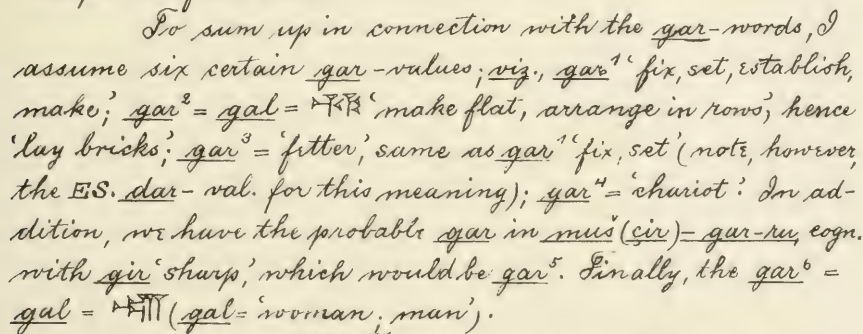 To sum up in connection with the gar-words, I
assume six certain gar-values; viz., gar¹ ‘fix, set, establish,
make’; gar² = gal = ‘make flat, arrange in rows’, hence
‘lay bricks’; gar³ = ‘fetter’, same as gar¹ ‘fix, set’ (note, however,
the ES. dar-val. for this meaning); gar⁴ = ‘chariot’. In ad-
dition, we have the probable gar in muš (çir)-gar-ru, cogn.
with gir ‘sharp’, which would be gar⁵. Finally, the gar⁶ =
gal = (gal = ‘woman; man’).